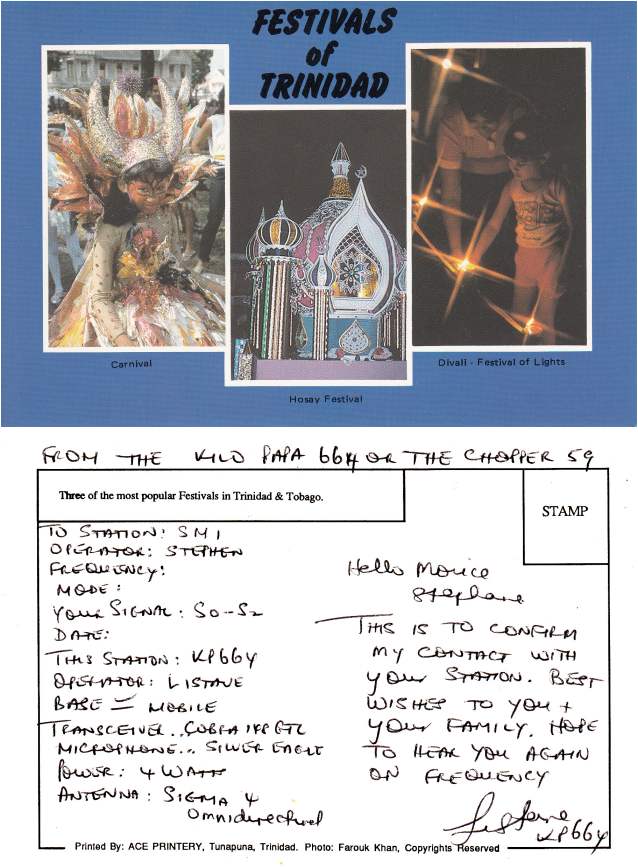 FESTIVALS
of
TRINIDAD
Carnival
Hosay Festival
Divali - Festival of Lights
FROM THE KILO PAPA 664 OR THE CHOPPER 59
Three of the most popular Festivals in Trinidad & Tobago.
STAMP
TO STATION: SM1
OPERATOR: STEPHEN
FREQUENCY:
MODE:
YOUR SIGNAL: S0-S2
DATE:
THIS STATION: KP664
OPERATOR: LISTANE
BASE = MOBILE
TRANSCEIVER.. COBRA 148 GTL
MICROPHONE... SILVER EAGLE
POWER: 4 WATTS
ANTENNA: SIGMA 4
Omnidirectional
Hello Morice
Stephane
THIS IS TO CONFIRM
MY CONTACT WITH
YOUR STATION. BEST
WISHES TO YOU +
YOUR FAMILY. HOPE
TO HEAR YOU AGAIN
ON FREQUENCY
KP664
Printed By: ACE PRINTERY, Tunapuna, Trinidad. Photo: Farouk Khan, Copyrights Reserved